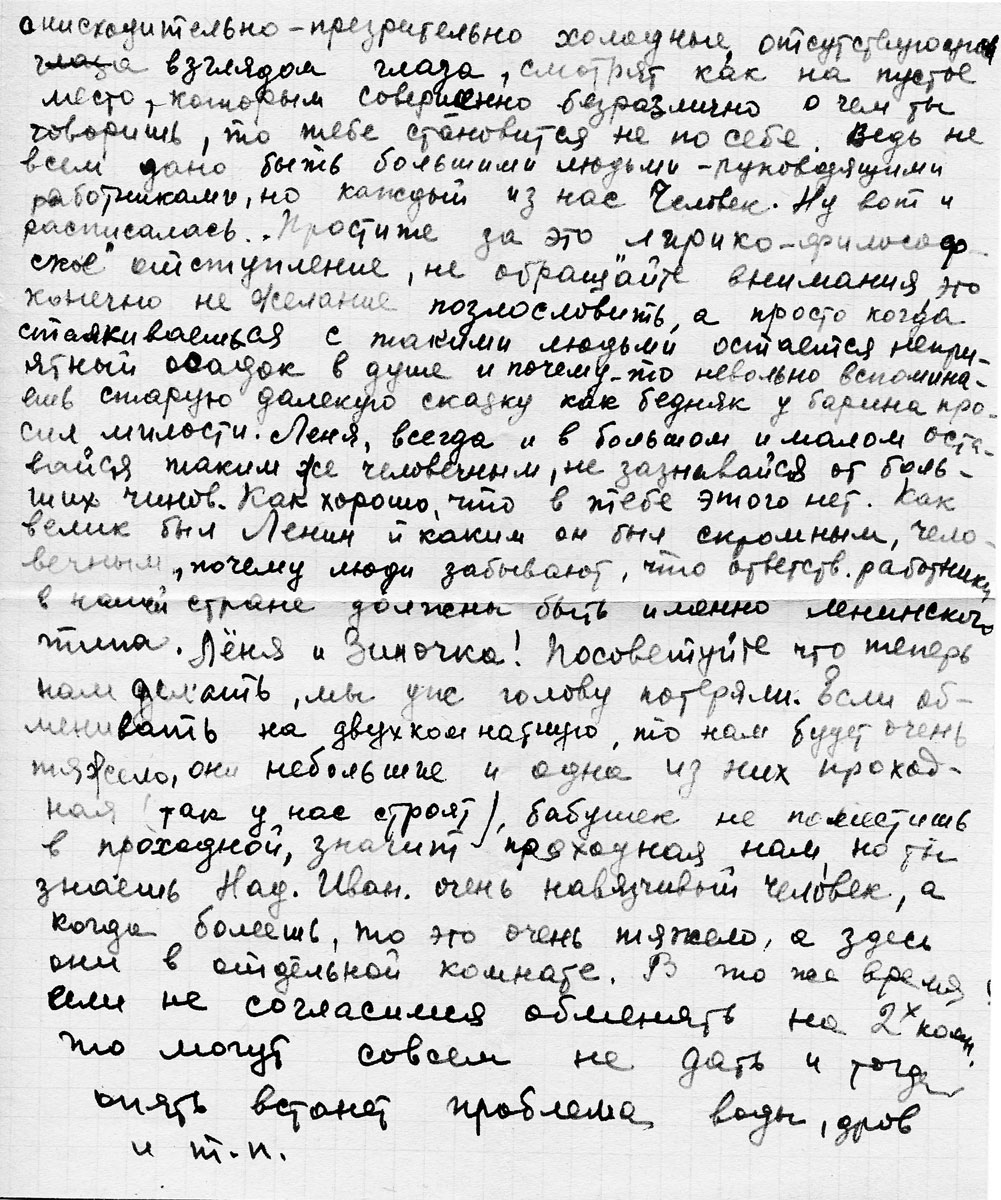 снисходительно-презрительно холодные, отсутствующим
взглядом глаза, смотрят как на пустое
место, которым совершенно безразлично о чем ты
говоришь, то тебе становится не по себе. Ведь не
всем дано быть большими людьми - руководящими
работниками, но каждый из нас Человек. Ну вот и
расписалась.. Простите за это лирико-философ-
ское" отступление, не обращайте внимания, это
конечно не желание позлословить, а просто когда
сталкиваешься с такими людьми остается непри-
ятный осадок в душе и почему-то невольно вспомина-
ешь старую далекую сказку как бедняк у барина про-
сил милости. Леня, всегда и в большом и малом оста-
вайся таким же человечным, не зазнавайся от боль-
ших чинов. Как хорошо, что в тебе этого нет. Как
велик был Ленин и каким он был скромным, чело-
вечным, почему люди забывают, что ответств. работники
в нашей стране должны быть именно ленинского
типа. Лёня и Зиночка! Посоветуйте что теперь
нам делать, мы уж голову потеряли. Если об-
менивать на двухкомнатную, то нам будет очень
тяжело, они небольшие и одна из них проход-
ная (так у нас строят), бабушек не поместишь
в проходной, значит проходная нам, но ты
знаешь Над. Иван. очень навязчивый человек, а
когда болеешь, то это очень тяжело, а здесь
они в отдельной комнате. В то же время,
если не согласимся обменять на 2х комн.
то могут совсем не дать и тогда
опять встанет проблема воды, дров
и т.п.